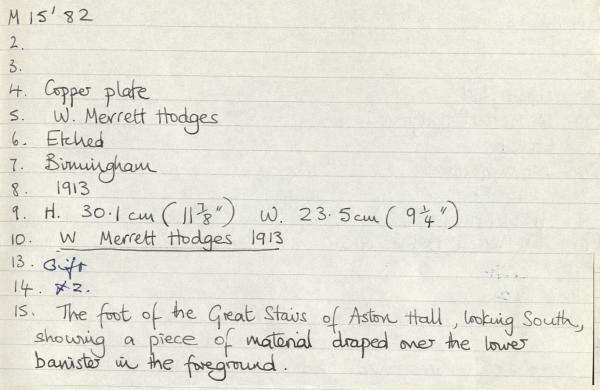 M 15' 82
2.
3.
4. Copper plate
5. W. Merrett Hodges
6. Etched
7. Birmingham
8. 1913
9. H. 30.1 cm (11 7/8") W. 23.5 cm (9 1/4")
10. W Merrett Hodges 1913
13. Gift
14. *2.
15. The foot of the Great Stairs of Aston Hall, looking South,
showing a piece of material draped over the lower
banister in the foreground.